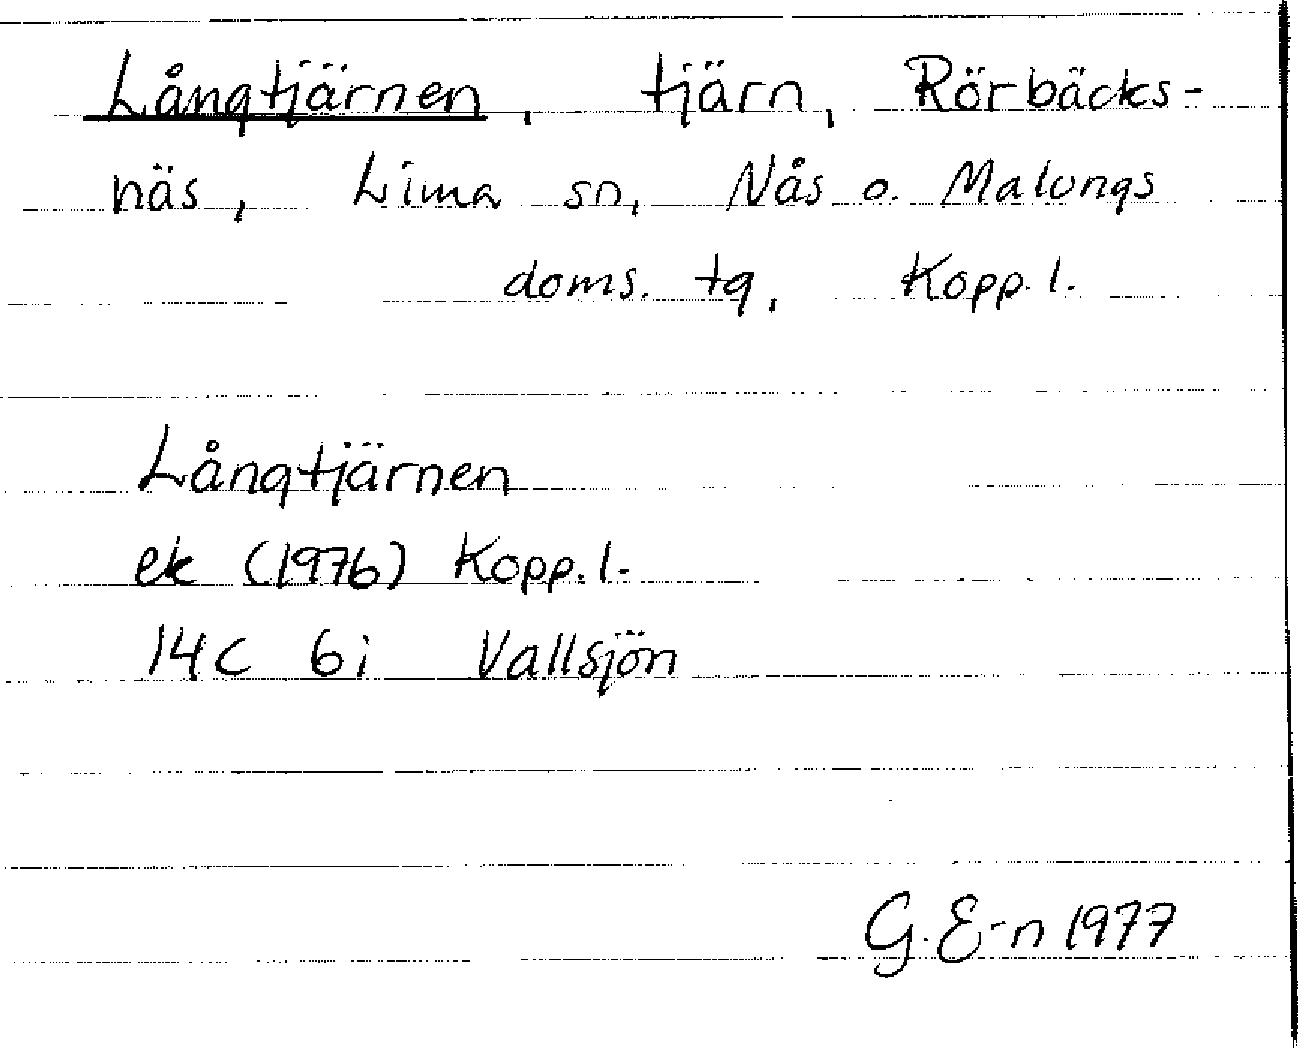 Långtjärnen, tjärn, Rörbäcks-
näs, Lima sn, Nås o. Malungs
doms. tg, Kopp. l.
Långtjärnen
ek (1976) Kopp. l.
14C 6i Vallsjön
G. E-n 1977